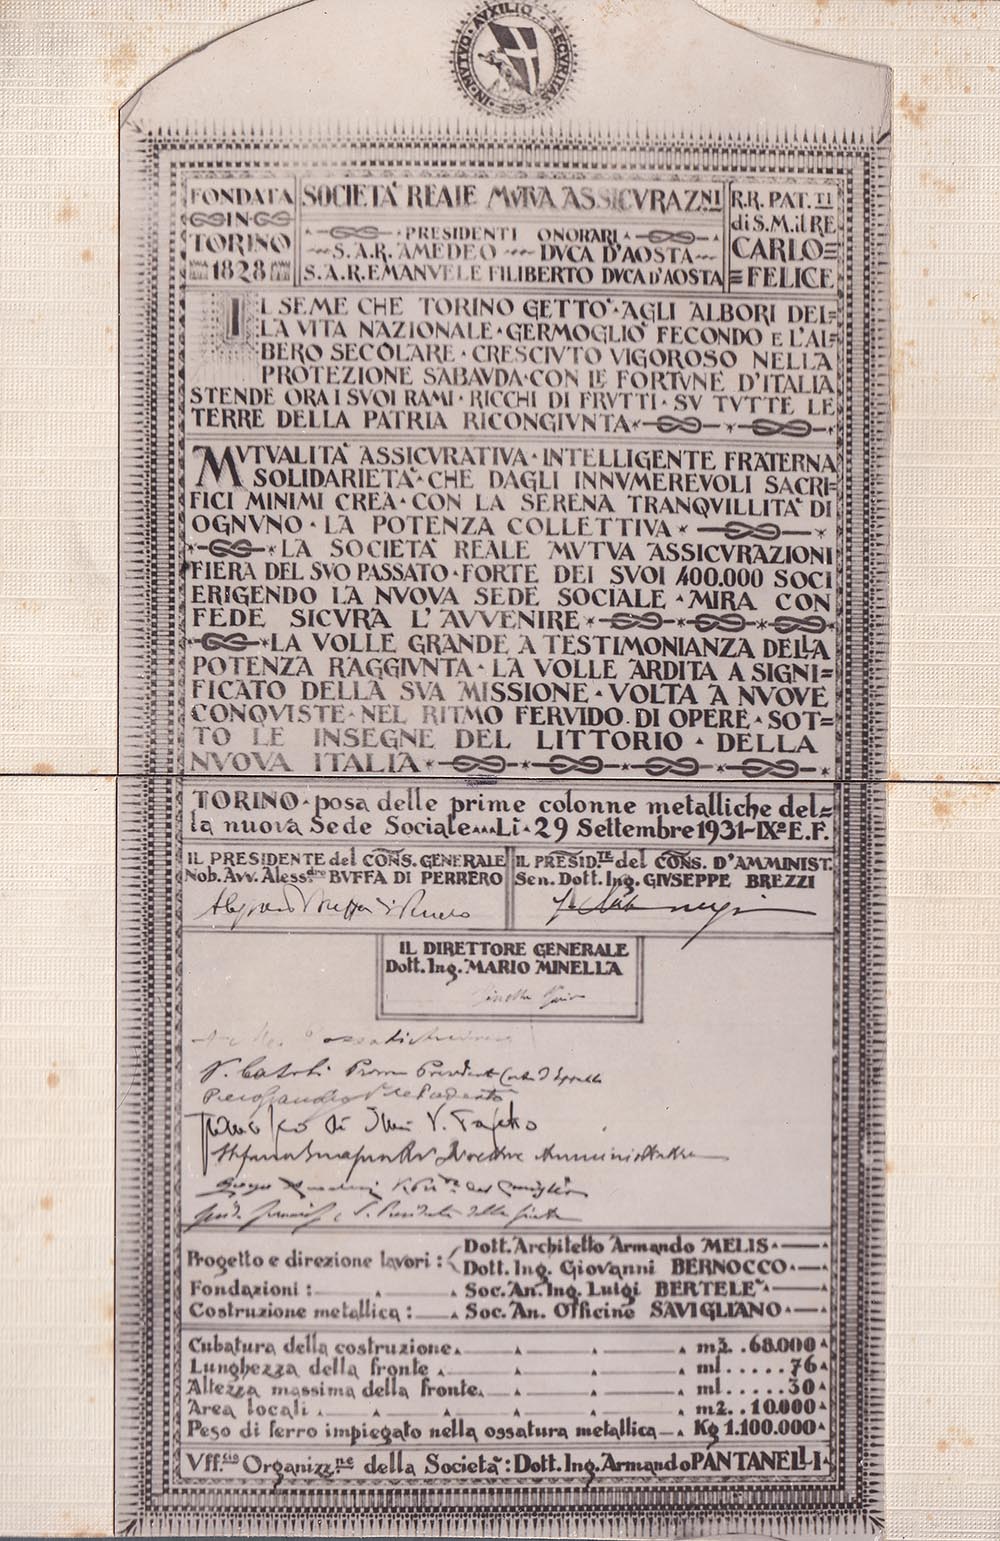 IN·MVTVO·AVXILIO·SECVRITAS
FONDATA
IN
TORINO
1828
SOCIETÀ REALE MVTVA ASSICVRAZNI
PRESIDENTI ONORARI
S.A.R. AMEDEO DVCA D'AOSTA
S.A.R. EMANVELE FILIBERTO DVCA D'AOSTA
R.R. PAT.TI
di S.M. il RE
CARLO=
=FELICE
IL SEME CHE TORINO GETTO'·AGLI ALBORI DEL=
LA VITA NAZIONALE·GERMOGLIO' FECONDO E L'AL=
BERO SECOLARE·CRESCIVTO VIGOROSO NELLA
PROTEZIONE SABAVDA·CON LE FORTVNE D'ITALIA
STENDE ORA I SVOI RAMI·RICCHI DI FRVTTI·SV TVTTE LE
TERRE DELLA PATRIA RICONGIVNTA
MVTVALITÀ ASSICVRATIVA·INTELLIGENTE FRATERNA
SOLIDARIETÀ·CHE DAGLI INNVMEREVOLI SACRI=
FICI MINIMI CREA·CON LA SERENA TRANQVILLITÀ DI
OGNVNO·LA POTENZA COLLETTIVA
LA SOCIETÀ REALE MVTVA ASSICVRAZIONI
FIERA DEL SVO PASSATO·FORTE DEI SVOI 400.000 SOCI
ERIGENDO LA NVOVA SEDE SOCIALE·MIRA CON
FEDE SICVRA L'AVVENIRE
LA VOLLE GRANDE A TESTIMONIANZA DELLA
POTENZA RAGGIVNTA·LA VOLLE ARDITA A SIGNI=
FICATO DELLA SVA MISSIONE·VOLTA A NVOVE
CONQVISTE·NEL RITMO FERVIDO DI OPERE·SOT=
TO LE INSEGNE DEL LITTORIO·DELLA
NVOVA ITALIA
TORINO·posa delle prime colonne metalliche del=
la nuova Sede Sociale...Lì·29 Settembre 1931-IXº E.F.
IL PRESIDENTE del CONS. GENERALE
Nob. Avv. Aless.dro BVFFA DI PERRERO
IL PRESID.TE del CONS. D'AMMINIST.
Sen. Dott. Ing. GIVSEPPE BREZZI
IL DIRETTORE GENERALE
Dott. Ing. MARIO MINELLA
Progetto e direzione lavori: Dott. Architetto Armando MELIS
Dott. Ing. Giovanni BERNOCCO
Fondazioni: Soc. An. Ing. Luigi BERTELE'
Costruzione metallica: Soc. An. Officine SAVIGLIANO
Cubatura della costruzione m3..68.000
Lunghezza della fronte ml.....76
Altezza massima della fronte ml.....30
Area locali m2..10.000
Peso di ferro impiegato nella ossatura metallica Kg 1.100.000
Vff.cio Organizz.ne della Società: Dott. Ing. Armando PANTANELLI